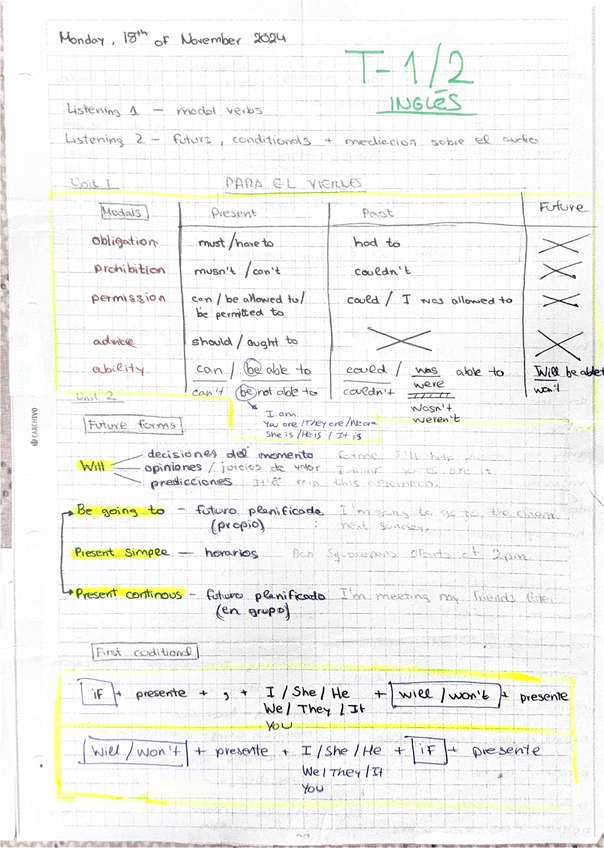 Monday, 18th of November 2024
T-1/2
INGLÉS
Listening 1 - modal verbs
Listening 2 - futurs, conditionals + mediacion sobre el audio
Unit 1 PARA EL VIERNES
Modals Present Past Future
obligation must/have to had to
prohibition musn't / can't couldn't
permission can / be allowed to/ could / I was allowed to
be permitted to
advice should / ought to
ability can / be able to could / was able to Will be able
were
can't be not able to couldn't won't
wasn't
weren't
Unit 2
I am
You are / They are / We are
She is / He is / It is
CARCHIVO
Future forms
Will decisiones del momento I'll help
opiniones / juicios de valor
predicciones rain this afternoon
Be going to - futuro planificado I'm going to go to the cinema
(propio) next sunday.
Present simple - horarios starts at 2pm
Present continous - futuro planificado I'm meeting my friends
(en grupo)
First coditional
if + presente + , + I / She / He + will / won't + presente
We / They / It
You
Will / won't + presente + I / She / He + if + presente
We / They / It
You